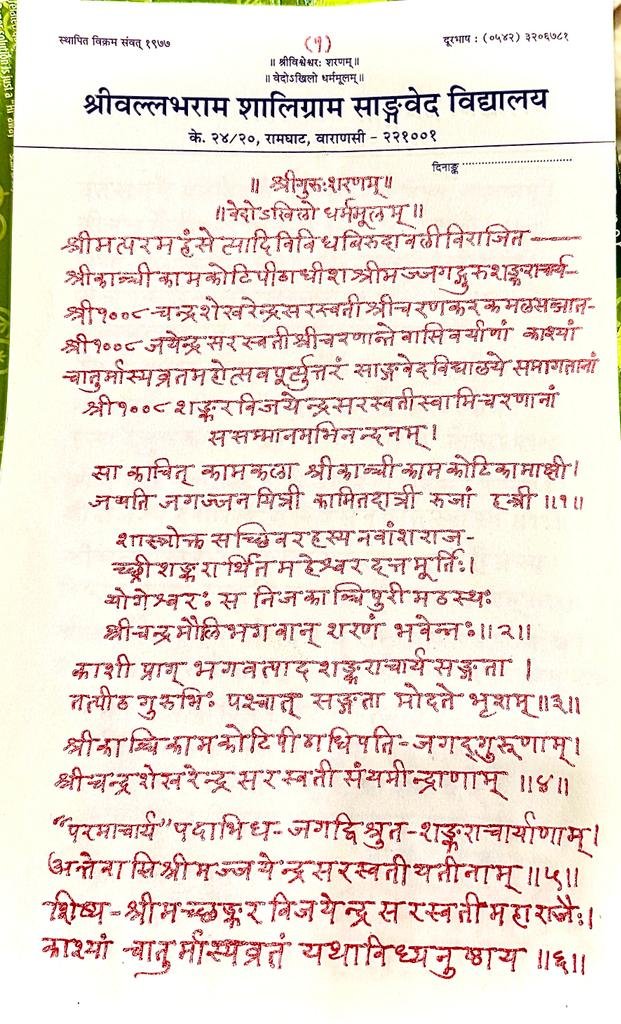 स्थापित विक्रम संवत् १९७७
(१)
दूरभाष : (०५४२) ३२०६७८१
॥ श्रीविश्वेश्वरः शरणम्॥
॥ वेदोऽखिलो धर्ममूलम्॥
श्रीवल्लभराम शालिग्राम साङ्गवेद विद्यालय
के. २४/२०, रामघाट, वाराणसी - २२१००१
दिनाङ्क
॥ श्रीगुरुःशरणम्॥
॥वेदोऽखिलो धर्ममूलम्॥
श्रीमत्परमहंसेत्यादिविविधबिरुदावलीविराजित—
श्रीकाञ्चीकामकोटिपीठाधीश श्रीमज्जगद्गुरुशङ्कराचार्य-
श्री१००८-चन्द्रशेखरेन्द्रसरस्वती श्रीचरणकरकमलसञ्जात-
श्री१००८ जयेन्द्रसरस्वतीश्रीचरणान्तेवासिवर्याणां काश्यां
चातुर्मास्यव्रतमहोत्सवपूर्त्युत्तरं साङ्गवेदविद्यालये समागतानां
श्री१००८ शङ्करविजयेन्द्रसरस्वतीस्वामिचरणानां
ससम्मानमभिनन्दनम्।
सा काचित् कामकला श्रीकाञ्ची कामकोटिकामाक्षी।
जयति जगज्जनयित्री कामितदात्री रुजां हन्त्री॥१॥
शास्त्रोक्तसच्छिवरहस्यनवांशराज-
च्छ्रीशङ्करार्थितमहेश्वरदत्तमूर्तिः।
योगेश्वरः स निजकाञ्चिपुरीमठस्थः
श्रीचन्द्रमौलिभगवान् शरणं भवेन्नः॥२॥
काशी प्राग् भगवत्पादशङ्कराचार्यसङ्गता।
तत्पीठगुरुभिः पश्चात् सङ्गता मोदते भृशम्॥३॥
श्रीकाञ्चिकामकोटिपीठाधिपति-जगद्गुरूणाम्।
श्रीचन्द्रशेखरेन्द्रसरस्वतीसंयमीन्द्राणाम्॥४॥
"परमाचार्य"पदाभिध-जगद्विश्रुत-शङ्कराचार्याणाम्।
अन्तेवासिश्रीमज्जयेन्द्रसरस्वतीयतीनाम्॥५॥
शिष्य-श्रीमच्छङ्करविजयेन्द्रसरस्वतीमहाराजैः।
काश्यां चातुर्मास्यव्रतं यथाविध्यनुष्ठाय॥६॥